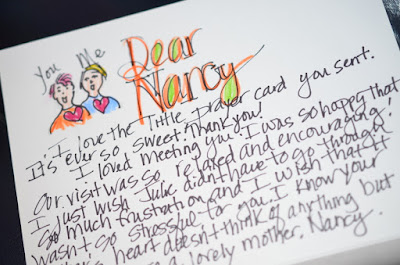 You Me
Dear
Nancy
I love the little prayer card you sent.
It's ever so sweet! Thank you!
I loved meeting you. I was so happy that
our visit was so relaxed and encouraging!
I just wish Julie didn't have to go through
so much frustration and I wish that it
wasn't so stressful for you. I know your
heart doesn't think of anything but
a lovely mother, Nancy.